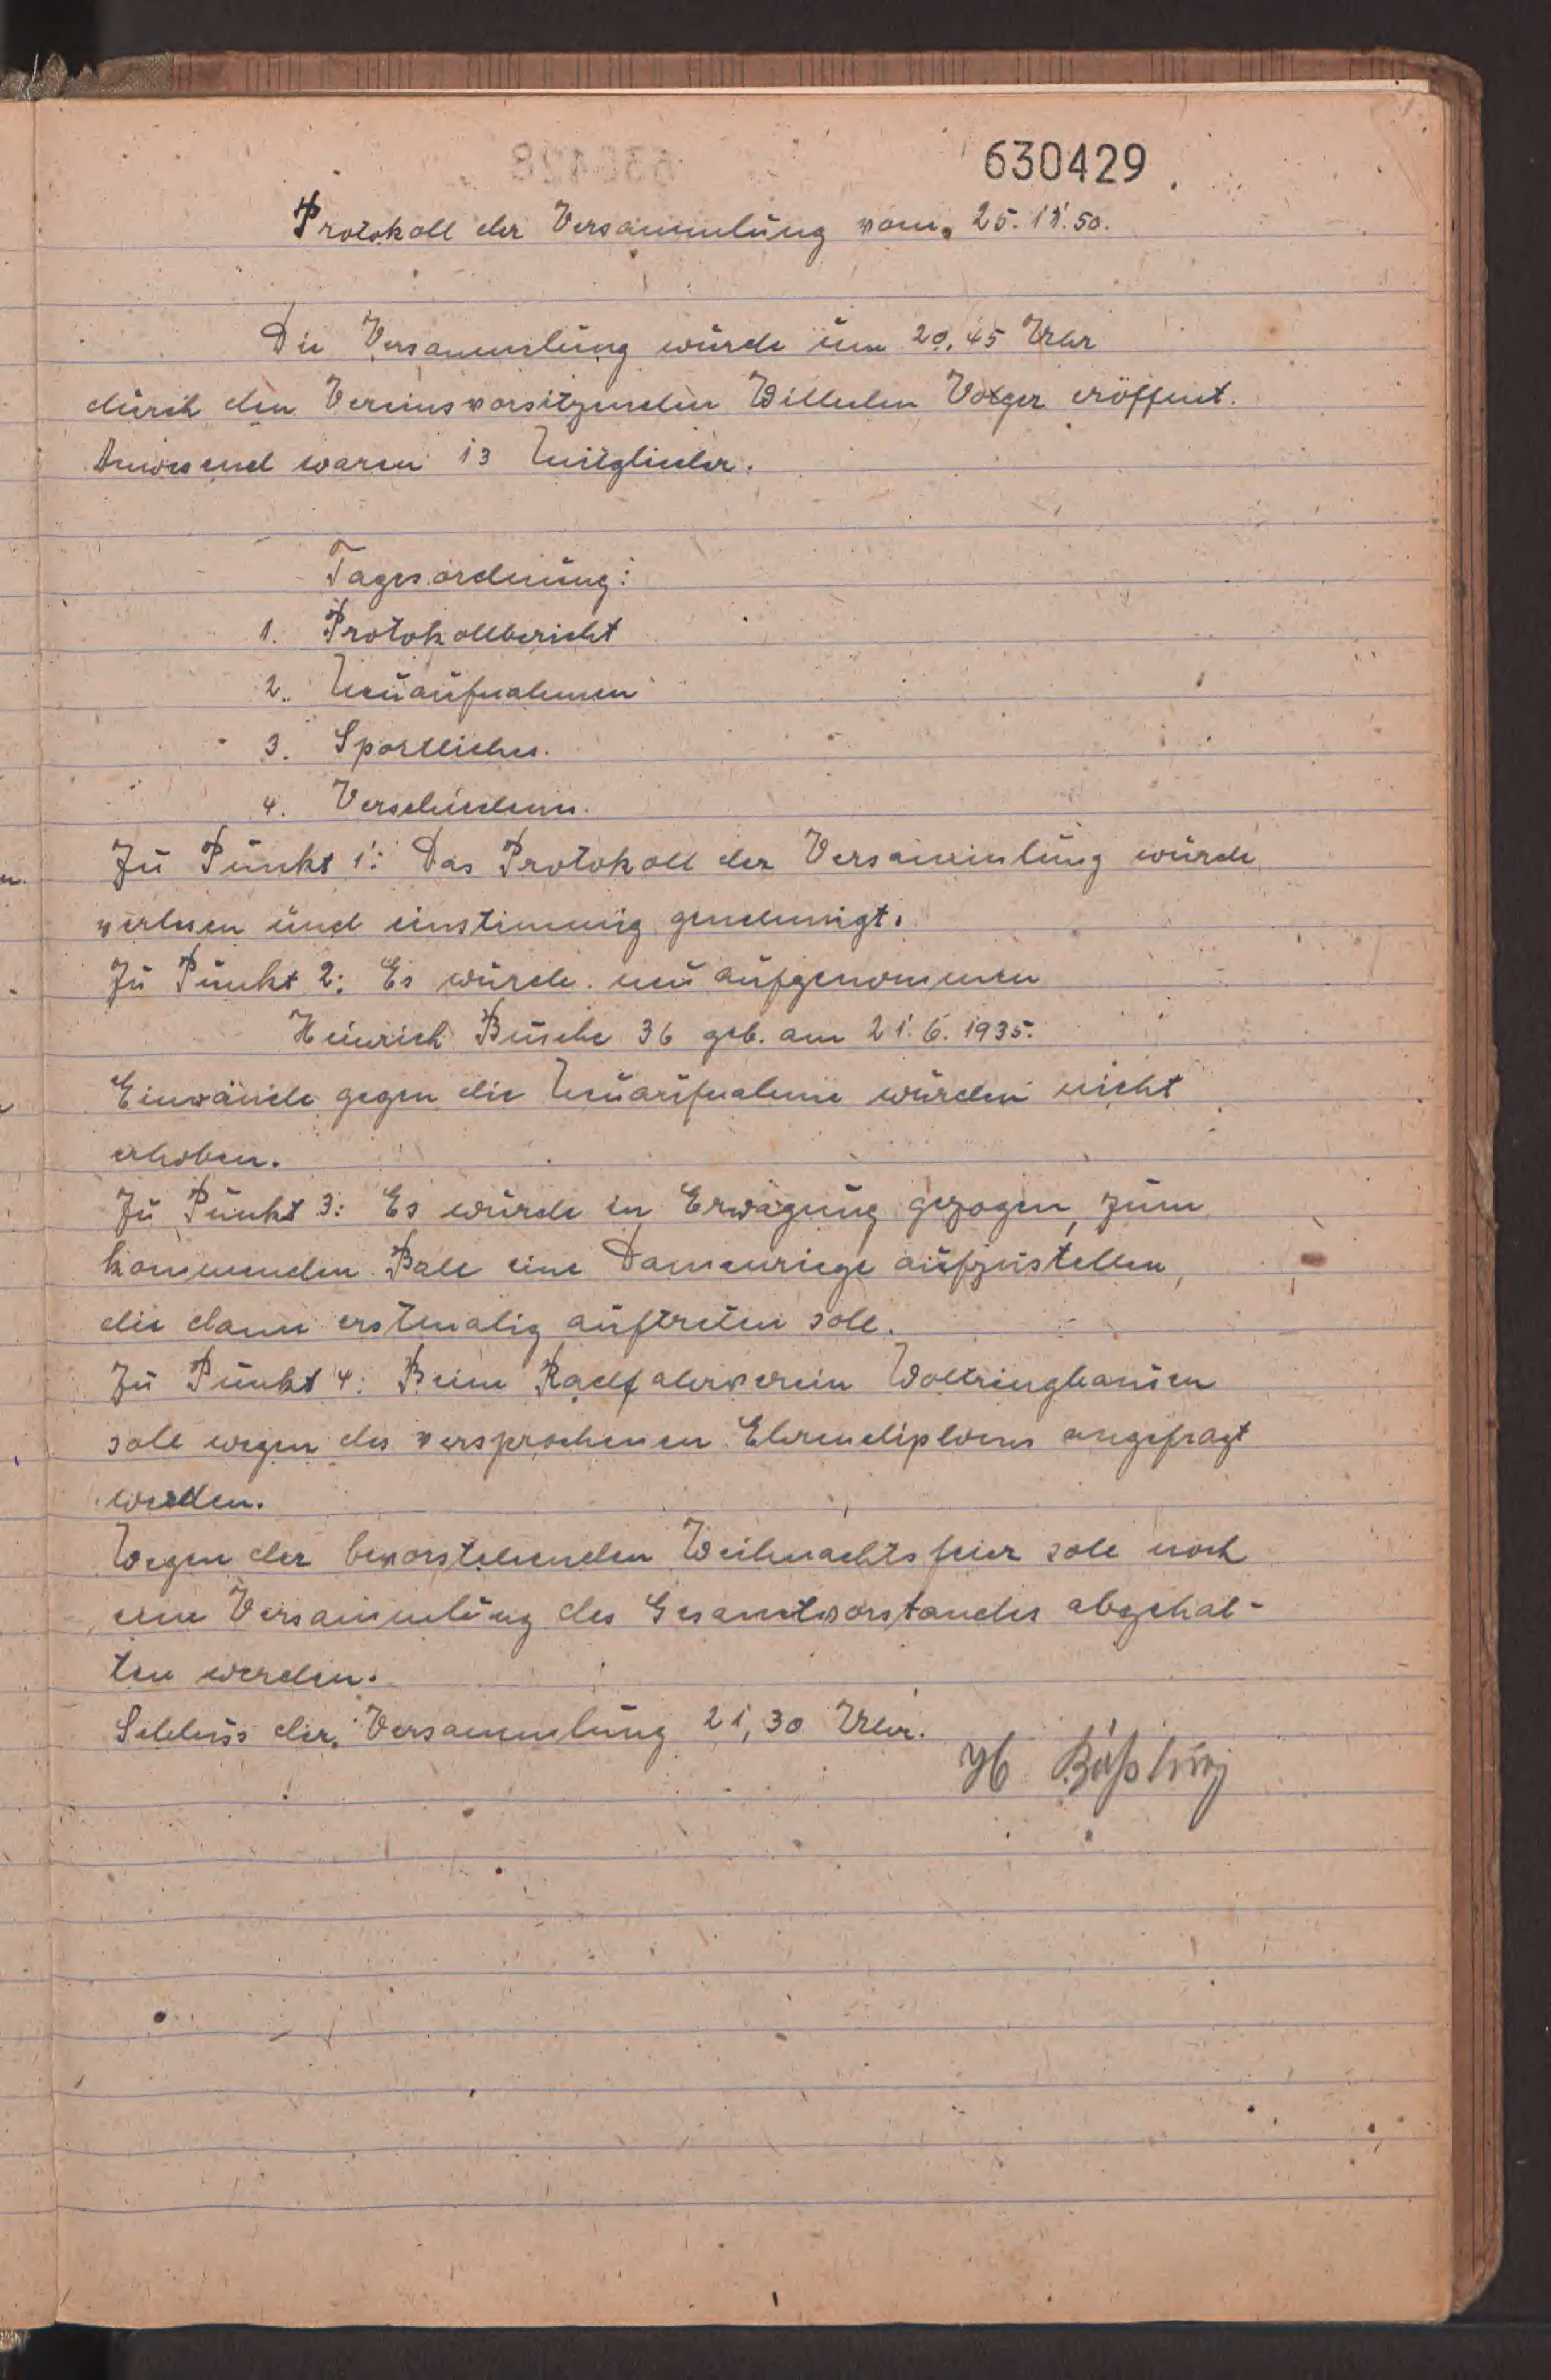 630429
Protokoll der Versammlung vom 25.11.50.
Die Versammlung wurde um 20.45 Uhr
durch den Vereinsvorsitzenden Wilhelm Volger eröffnet.
Anwesend waren 13 Mitglieder.
Tagesordnung:
1. Protokollbericht
2. Neuaufnahmen
3. Sportliches.
4. Verschiedenes.
Zu Punkt 1: Das Protokoll der Versammlung wurde
verlesen und einstimmig genehmigt.
Zu Punkt 2: Es wurde neu aufgenommen
Heinrich Busche 36 geb. am 21.6.1935.
Einwände gegen die Neuaufnahme wurden nicht
erhoben.
Zu Punkt 3: Es wurde in Erwägung gezogen, zum
kommenden Ball eine Damenriege aufzustellen,
die dann erstmalig auftreten soll.
Zu Punkt 4: Beim Radfahrverein Woltringhausen
soll wegen des versprochenen Ehrendiploms angefragt
werden.
Wegen der bevorstehenden Weihnachtsfeier soll noch
eine Versammlung des Gesamtvorstandes abgehal-
ten werden.
Schluss der Versammlung 21,30 Uhr.
H